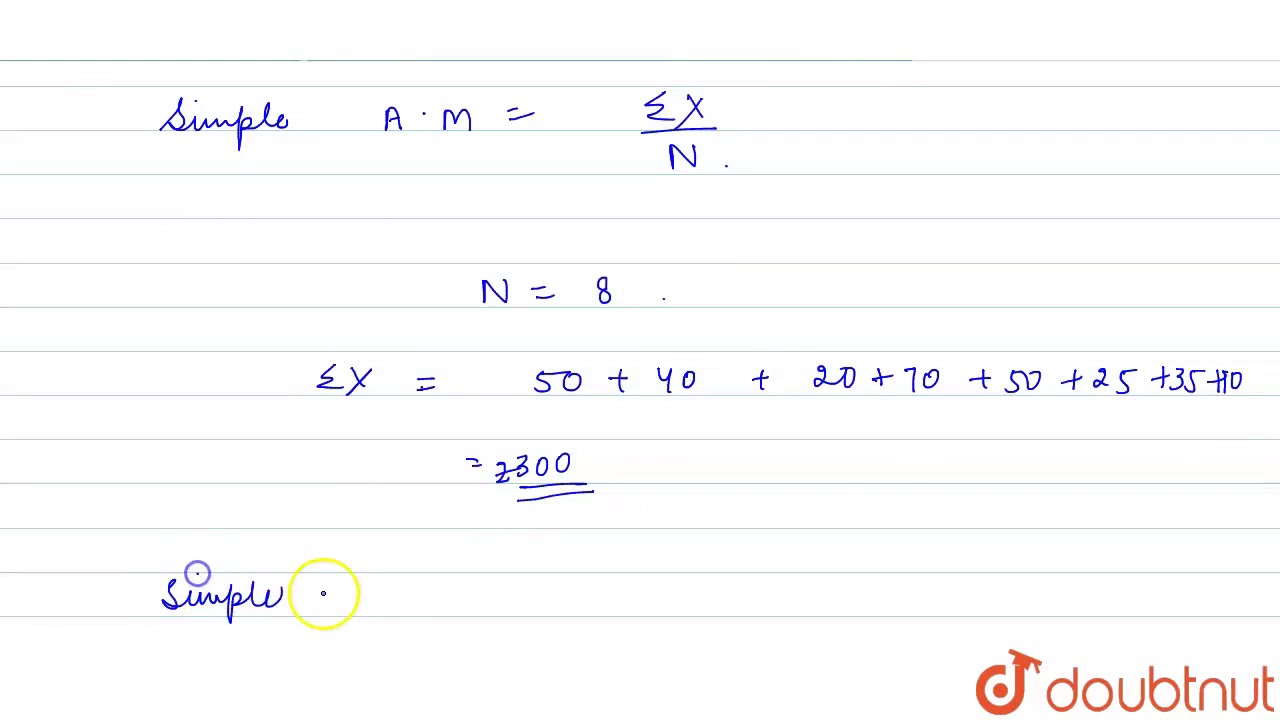 Simple A.M = ΣX
N.
N = 8 .
ΣX = 50 + 40 + 20 + 70 + 50 + 25 + 35 + 10
= 300
Simple
doubtnut